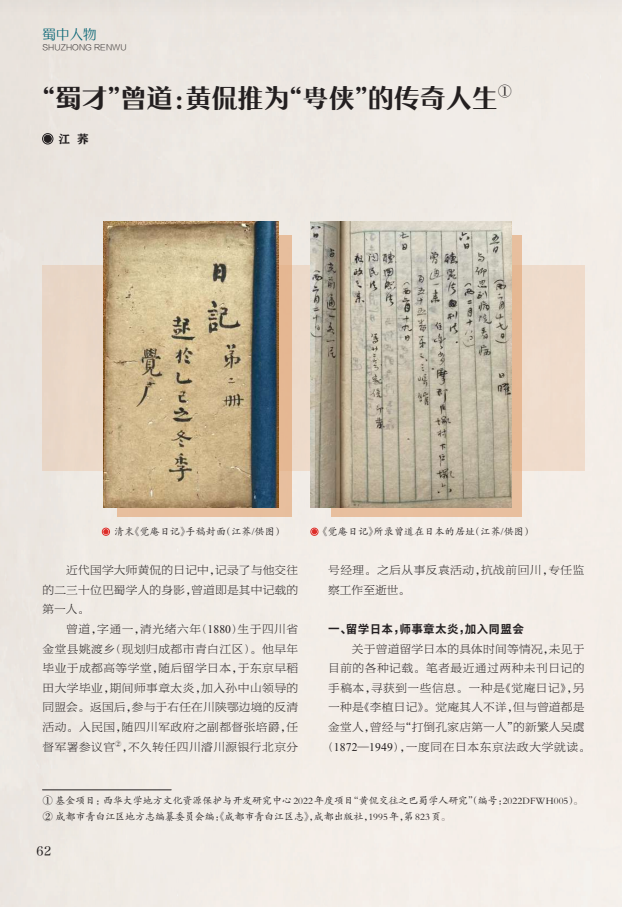 蜀中人物
SHUZHONG RENWU
“蜀才”曾道:黄侃推为“甹侠”的传奇人生①
◉ 江 荞
日記
第二册
起於乙巳之冬季
覺广
五日
(西二月十七日) 日曜
六日
七日
(西二月十九日)
◉ 清末《觉庵日记》手稿封面(江荞/供图)
◉《觉庵日记》所录曾道在日本的居址(江荞/供图)
近代国学大师黄侃的日记中,记录了与他交往
的二三十位巴蜀学人的身影,曾道即是其中记载的
第一人。
曾道,字通一,清光绪六年(1880)生于四川省
金堂县姚渡乡(现划归成都市青白江区)。他早年
毕业于成都高等学堂,随后留学日本,于东京早稻
田大学毕业,期间师事章太炎,加入孙中山领导的
同盟会。返国后,参与于右任在川陕鄂边境的反清
活动。入民国,随四川军政府之副都督张培爵,任
督军署参议官②,不久转任四川濬川源银行北京分
号经理。之后从事反袁活动,抗战前回川,专任监
察工作至逝世。
一、留学日本,师事章太炎,加入同盟会
关于曾道留学日本的具体时间等情况,未见于
目前的各种记载。笔者最近通过两种未刊日记的
手稿本,寻获到一些信息。一种是《觉庵日记》,另
一种是《李植日记》。觉庵其人不详,但与曾道都是
金堂人,曾经与“打倒孔家店第一人”的新繁人吴虞
(1872—1949),一度同在日本东京法政大学就读。
① 基金项目:西华大学地方文化资源保护与开发研究中心2022年度项目“黄侃交往之巴蜀学人研究”(编号:2022DFWH005)。
② 成都市青白江区地方志编纂委员会编:《成都市青白江区志》,成都出版社,1995年,第823页。
62